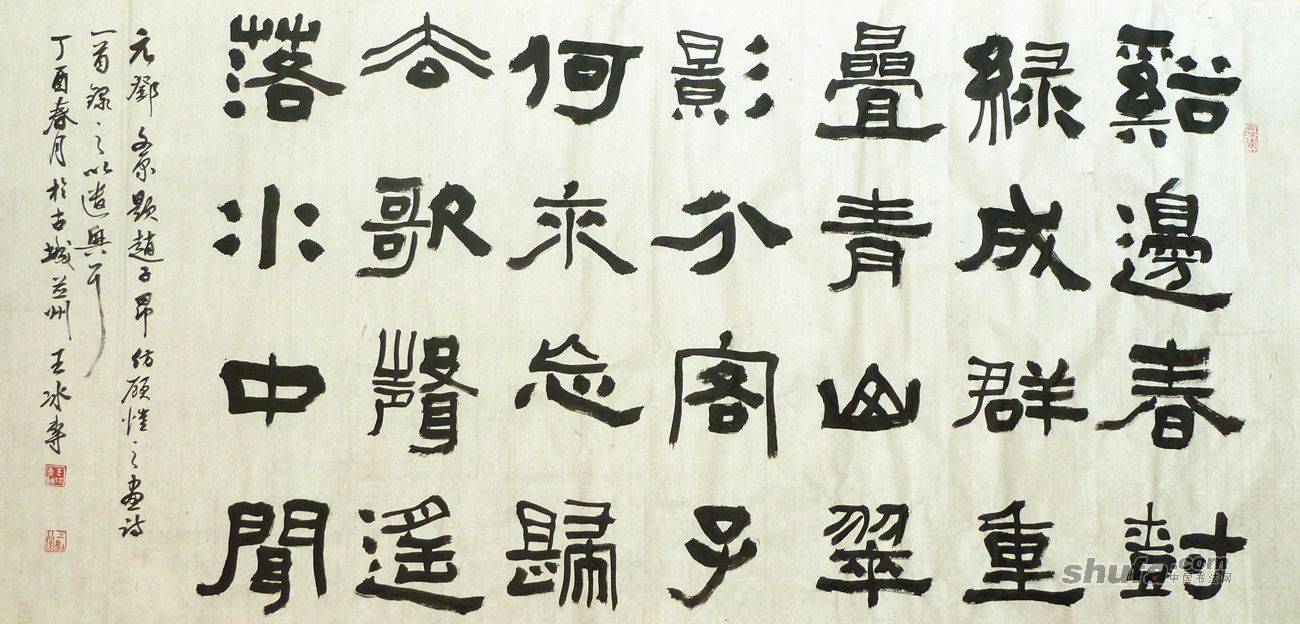 谿邊春樹
綠成群重
疊青山翠
影分客子
何來忘歸
去歌聲遙
落水中聞
元鄧文原題趙子昂仿顧愷之畫詩
一首錄之以遣興耳
丁酉春月於古城并州王冰書
shufa.com
中国书法网